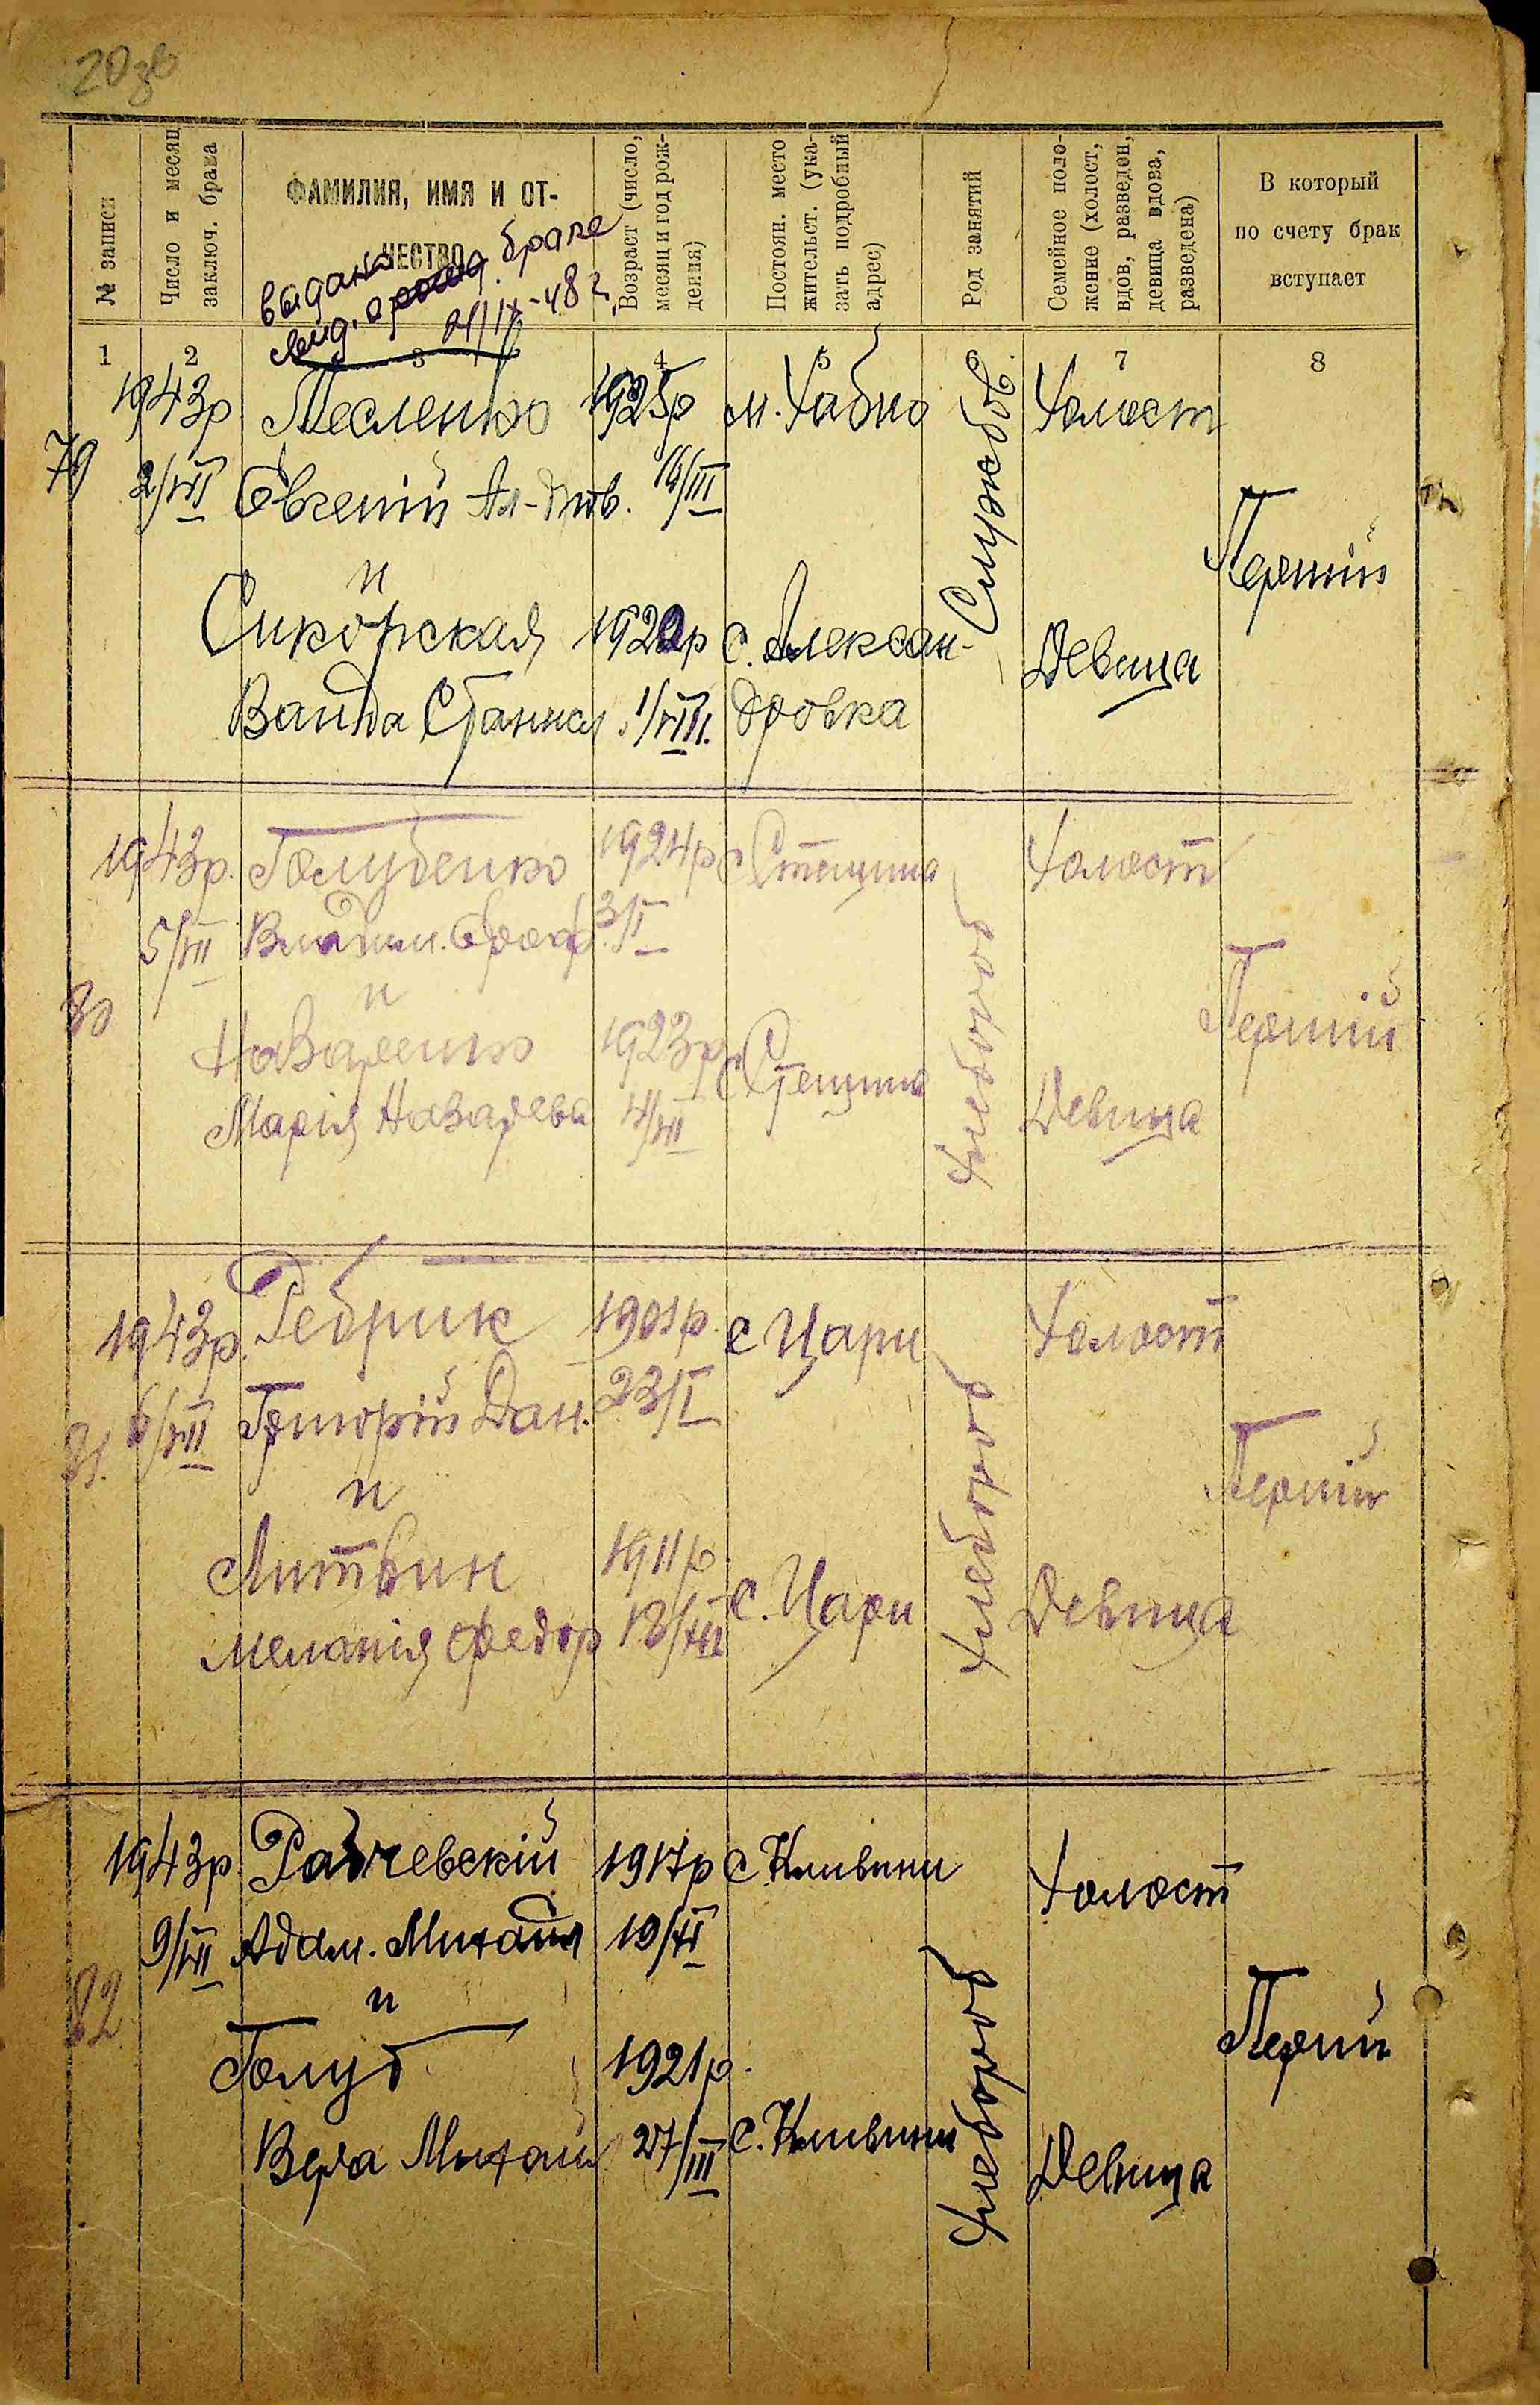 20зв
№ записи
Число и месяц
заключ. брака
ФАМИЛИЯ, ИМЯ И ОТ-
ЧЕСТВО
Возраст (число,
месяц и год рож-
дения)
Постоян. место
жительст. (ука-
зать подробный
адрес)
Род занятий
Семейное поло-
жение (холост,
вдов, разведен,
девица вдова,
разведена)
В который
по счету брак
вступает
выдано
браке
21/IX-48 г.
1 2 3 4 5 6 7 8
79
1943р Месленко 1925р м. Хабно Службов. Холост
2/VII Євгений Ал-дров. 16/III
и Перший
Сикорская 1922р с. Алексан- Девица
Ванда Станисл 1/VIII. дровка
80
1943р. Голубенко 1924р с Стещина Хлебороб Холост
5/VII Владим. Ероф. 3/I
и Перший
Назаренко 1923р с Стещина
Марія Назарева 4/VII Девица
81.
1943р. Ребрик 1901р. с Цари Хлебороб Холост
6/VII Григорій Дан. 23/I
и Перший
Литвин 1911р. с. Цари Девица
Меланія Федор 13/XII
82
1943р Рабчевскій 1917р с Кливини Хлебороб Холост
9/VII Адам. Михайл 10/XI
и Перший
Голуб 1921р.
Вера Михайл 27/III с. Кливини Девица